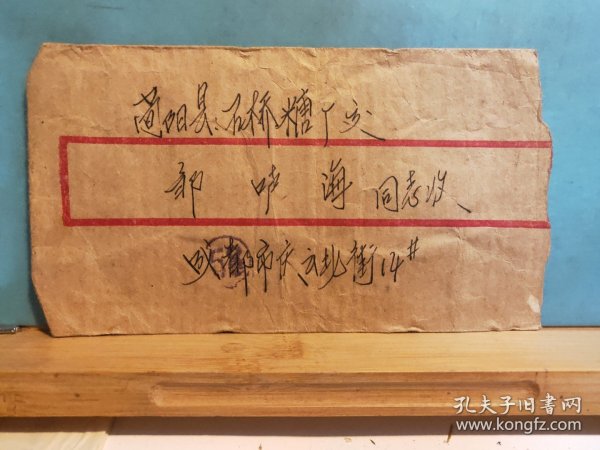 简阳县石桥糖厂交
郭 晓 海 同志收
成都市庆云北街14#
孔夫子旧书网
www.kongfz.com